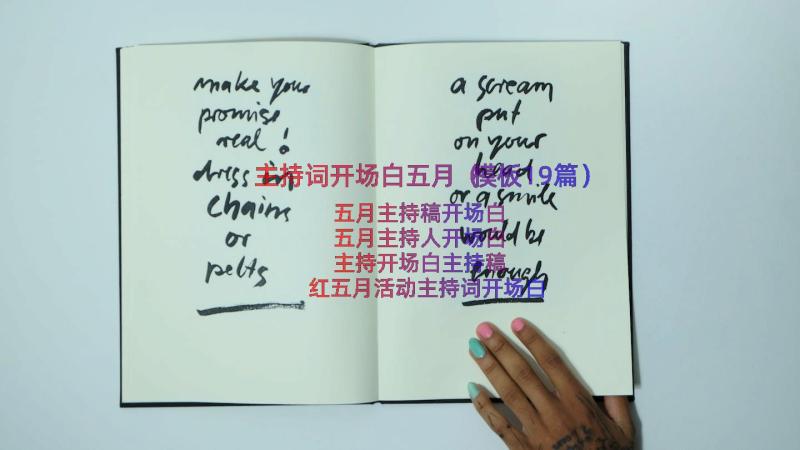 make your
promise
real!
dress in
chains
or
pelts
a scream
put
on your
head
or a smile
would be
enough
主持词开场白五月（模板19篇）
五月主持稿开场白
五月主持人开场白
主持开场白主持稿
红五月活动主持词开场白